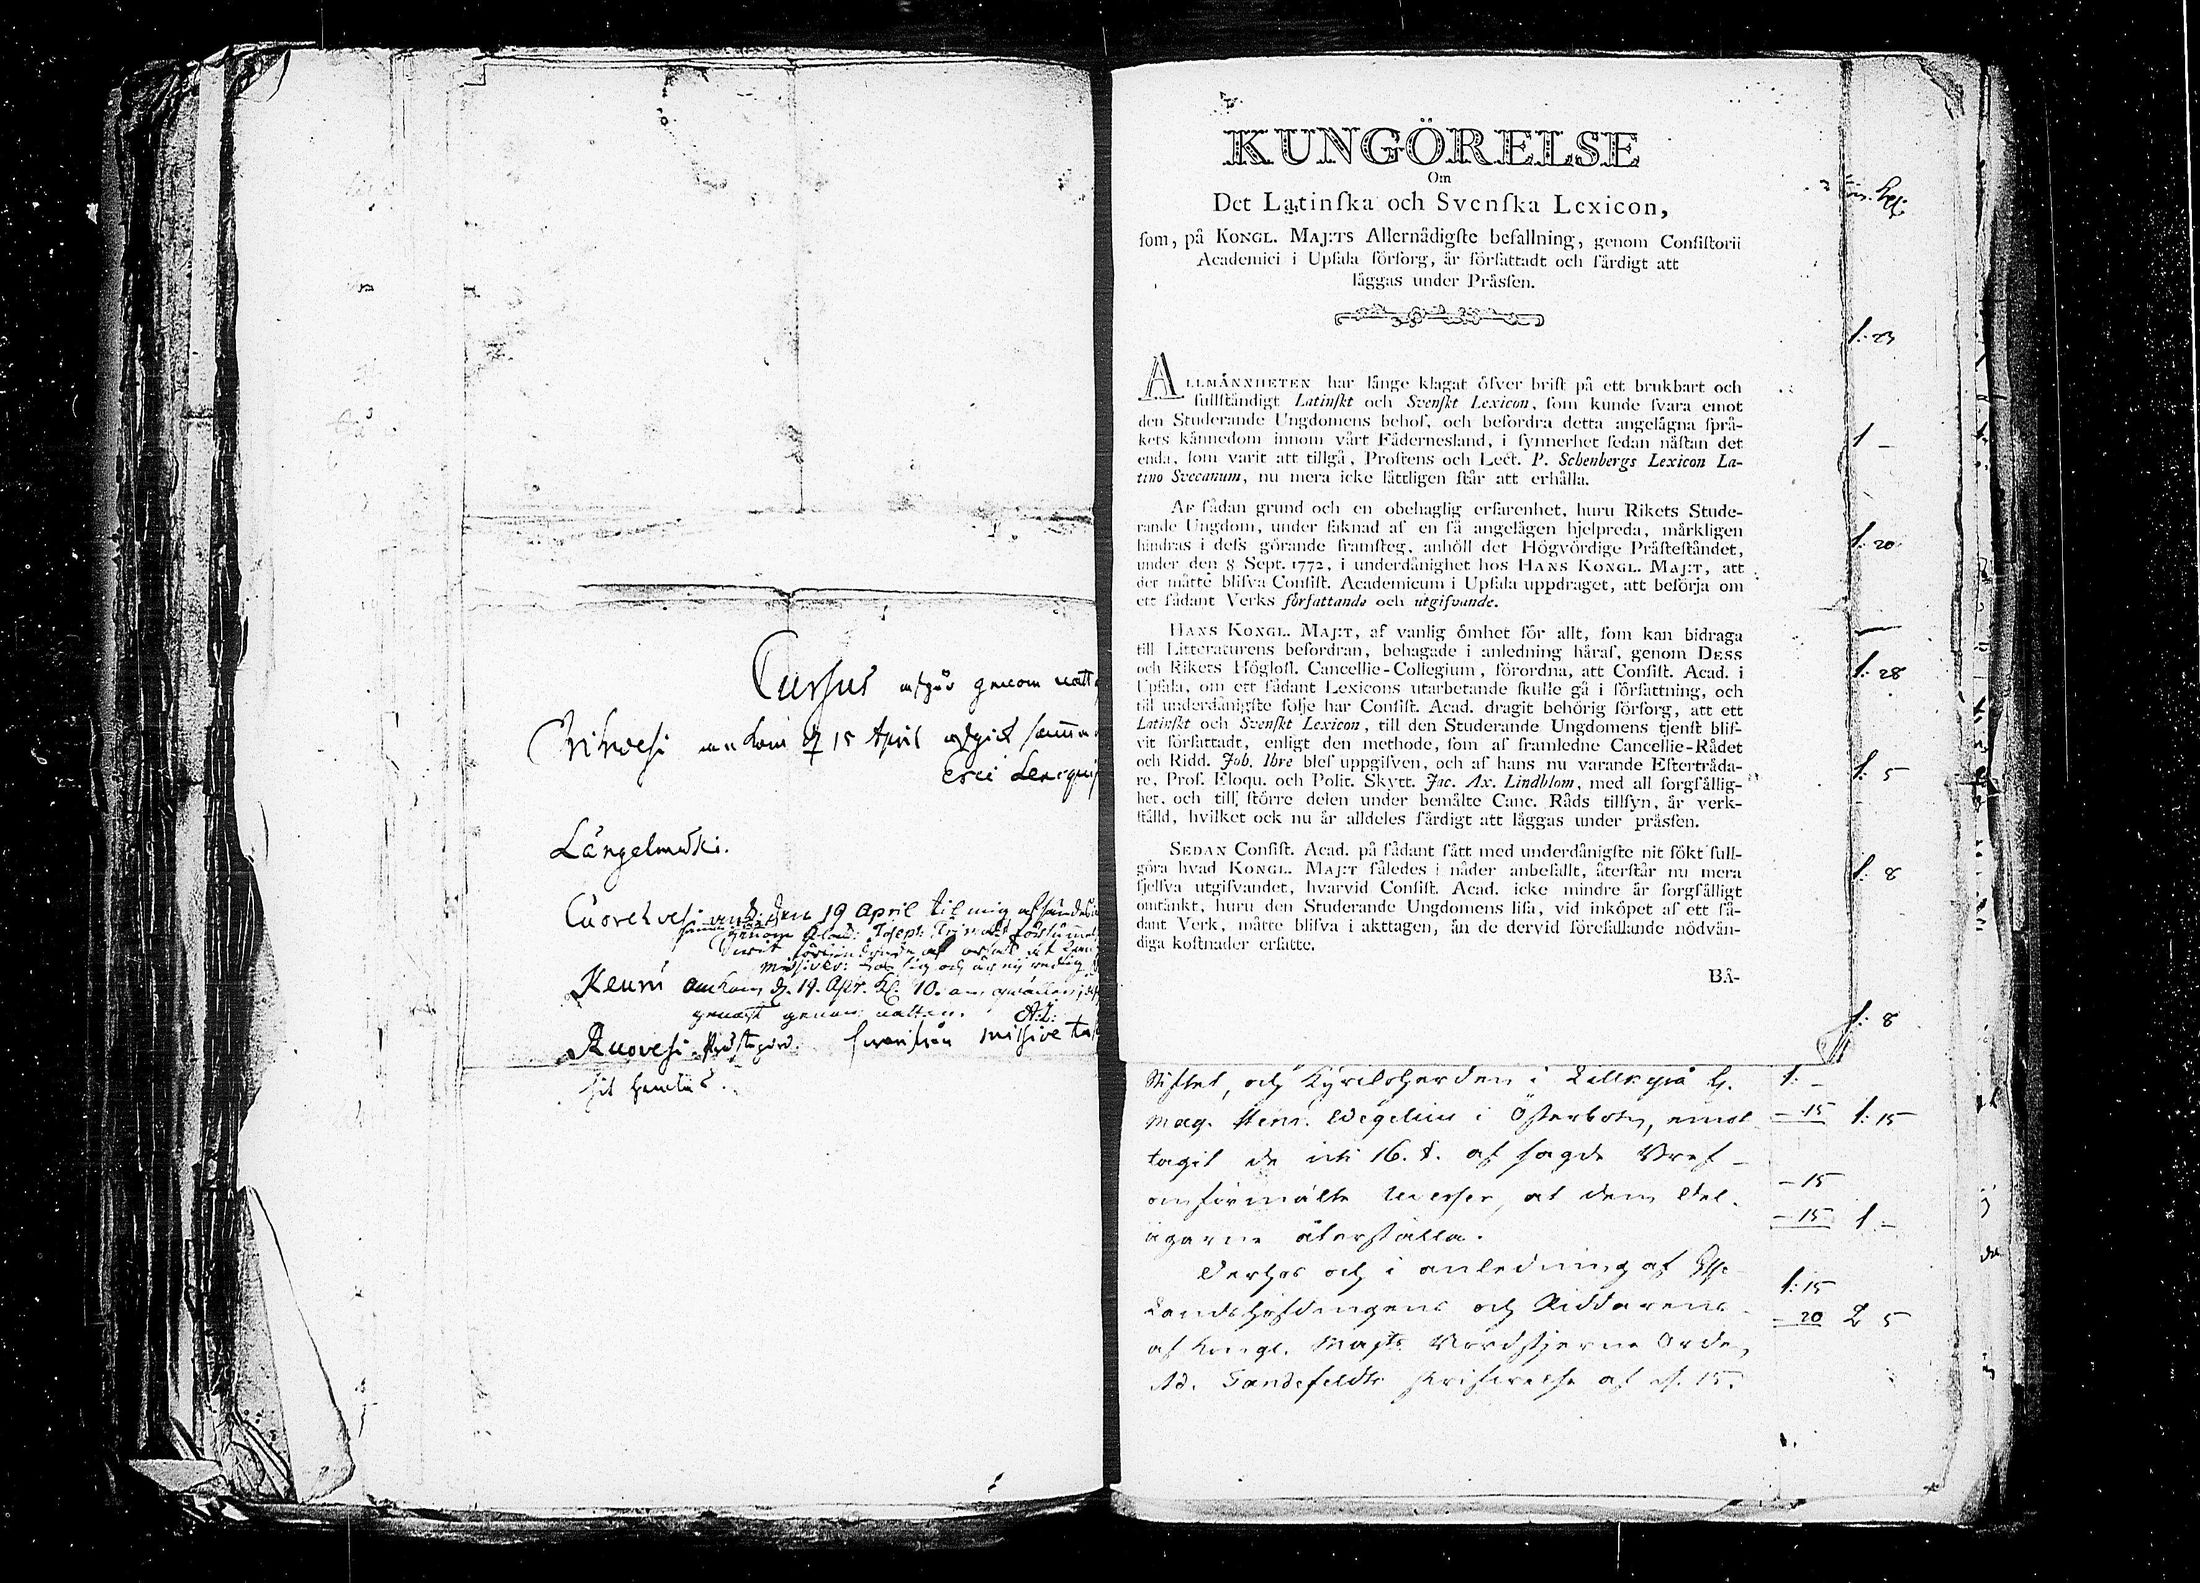 Cursus afgår genom natt
Orihvesi ankom d 15 April afgick samma
Erici Lencqui
Längelmäki.
Cuorehvesi den 19 April til mig afsändes
genom
Keuru ankom d. 19. Apr. Kl. 10. om qwällen,
genast genom natten. A:L:
Ruovesi Prästegård. missive
KUNGÖRELSE
Om
Det Latinſka och Svenſka Lexicon,
ſom, på KONGL. MAJ:TS Allernådigſte befallning, genom Conſiſtorii
Academici i Upſala förſorg, är författadt och färdigt att
läggas under Präsſen.
ALLMÄNNHETEN har länge klagat öfver briſt på ett brukbart och
fullſtändigt Latinſkt och Svenſkt Lexicon, ſom kunde ſvara emot
den Studerande Ungdomens behof, och befordra detta angelägna ſprå-
kets kännedom innom vårt Fädernesland, i ſynnerhet ſedan näſtan det
enda, ſom varit att tillgå, Proſtens och Lect. P. Schenbergs Lexicon La-
tino Svecanum, nu mera icke lättligen ſtår att erhålla.
AF ſådan grund och en obehaglig erfarenhet, huru Rikets Stude-
rande Ungdom, under ſaknad af en ſå angelägen hjelpreda, märkligen
hindras i deſs görande framſteg, anhöll det Högvördige Präſteſtåndet,
under den 8 Sept. 1772, i underdånighet hos HANS KONGL. MAJ:T, att
det måtte bliſva Conſiſt. Academicum i Upſala uppdraget, att beſörja om
ett ſådant Verks författande och utgifvande.
HANS KONGL. MAJ:T, af vanlig ömhet för allt, ſom kan bidraga
till Litteraturens befordran, behagade i anledning häraf, genom DESS
och Rikets Höglofl. Cancellie-Collegium, förordna, att Conſiſt. Acad. i
Upſala, om ett ſådant Lexicons utarbetande ſkulle gå i författning, och
till underdånigſte följe har Conſiſt. Acad. dragit behörig förſorg, att ett
Latinſkt och Svenſkt Lexicon, till den Studerande Ungdomens tjenſt blif-
vit författadt, enligt den methode, ſom af framledne Cancellie-Rådet
och Ridd. Joh. Ihre blef uppgifven, och af hans nu varande Efterträda-
re, Prof. Eloqu. och Polit. Skytt. Jac. Ax. Lindblom, med all ſorgfällig-
het, och till ſtörre delen under bemälte Canc. Råds tillſyn, är verk-
ſtälld, hvilket ock nu är alldeles färdigt att läggas under präsſen.
SEDAN Conſiſt. Acad. på ſådant ſätt med underdånigſte nit ſökt full-
göra hvad KONGL. MAJ:T ſåledes i nåder anbefallt, återſtår nu mera
ſjelfva utgifvandet, hvarvid Conſiſt. Acad. icke mindre är ſorgfälligt
omtänkt, huru den Studerande Ungdomens liſa, vid inköpet af ett ſå-
dant Verk, måtte blifva i akttagen, än de dervid förefallande nödvän-
diga koſtnader erſatte.
BÅ-
Stiftet, och Kyrkoherden i Lillkyrå H.
Mag. Henr. Wegelius i Österbotn, emot
tagit de uti 16. §. af sagde Bref
omförmälte Medlen, at dem Del-
ägarne återställa.
Derhos och i anledning af
Landshöfdingens och Riddarens
af Kongl. Majts Nordstjerne Orden,
Ad. Tandefeldts skrifvelse af d. 15.
1: 23
1 –
1: 20
1: 28
1: 5
1: 8
1: 8
1: –
– 15 1: 15
– 15
– 15 1 –
1: 15
– 20 2 5